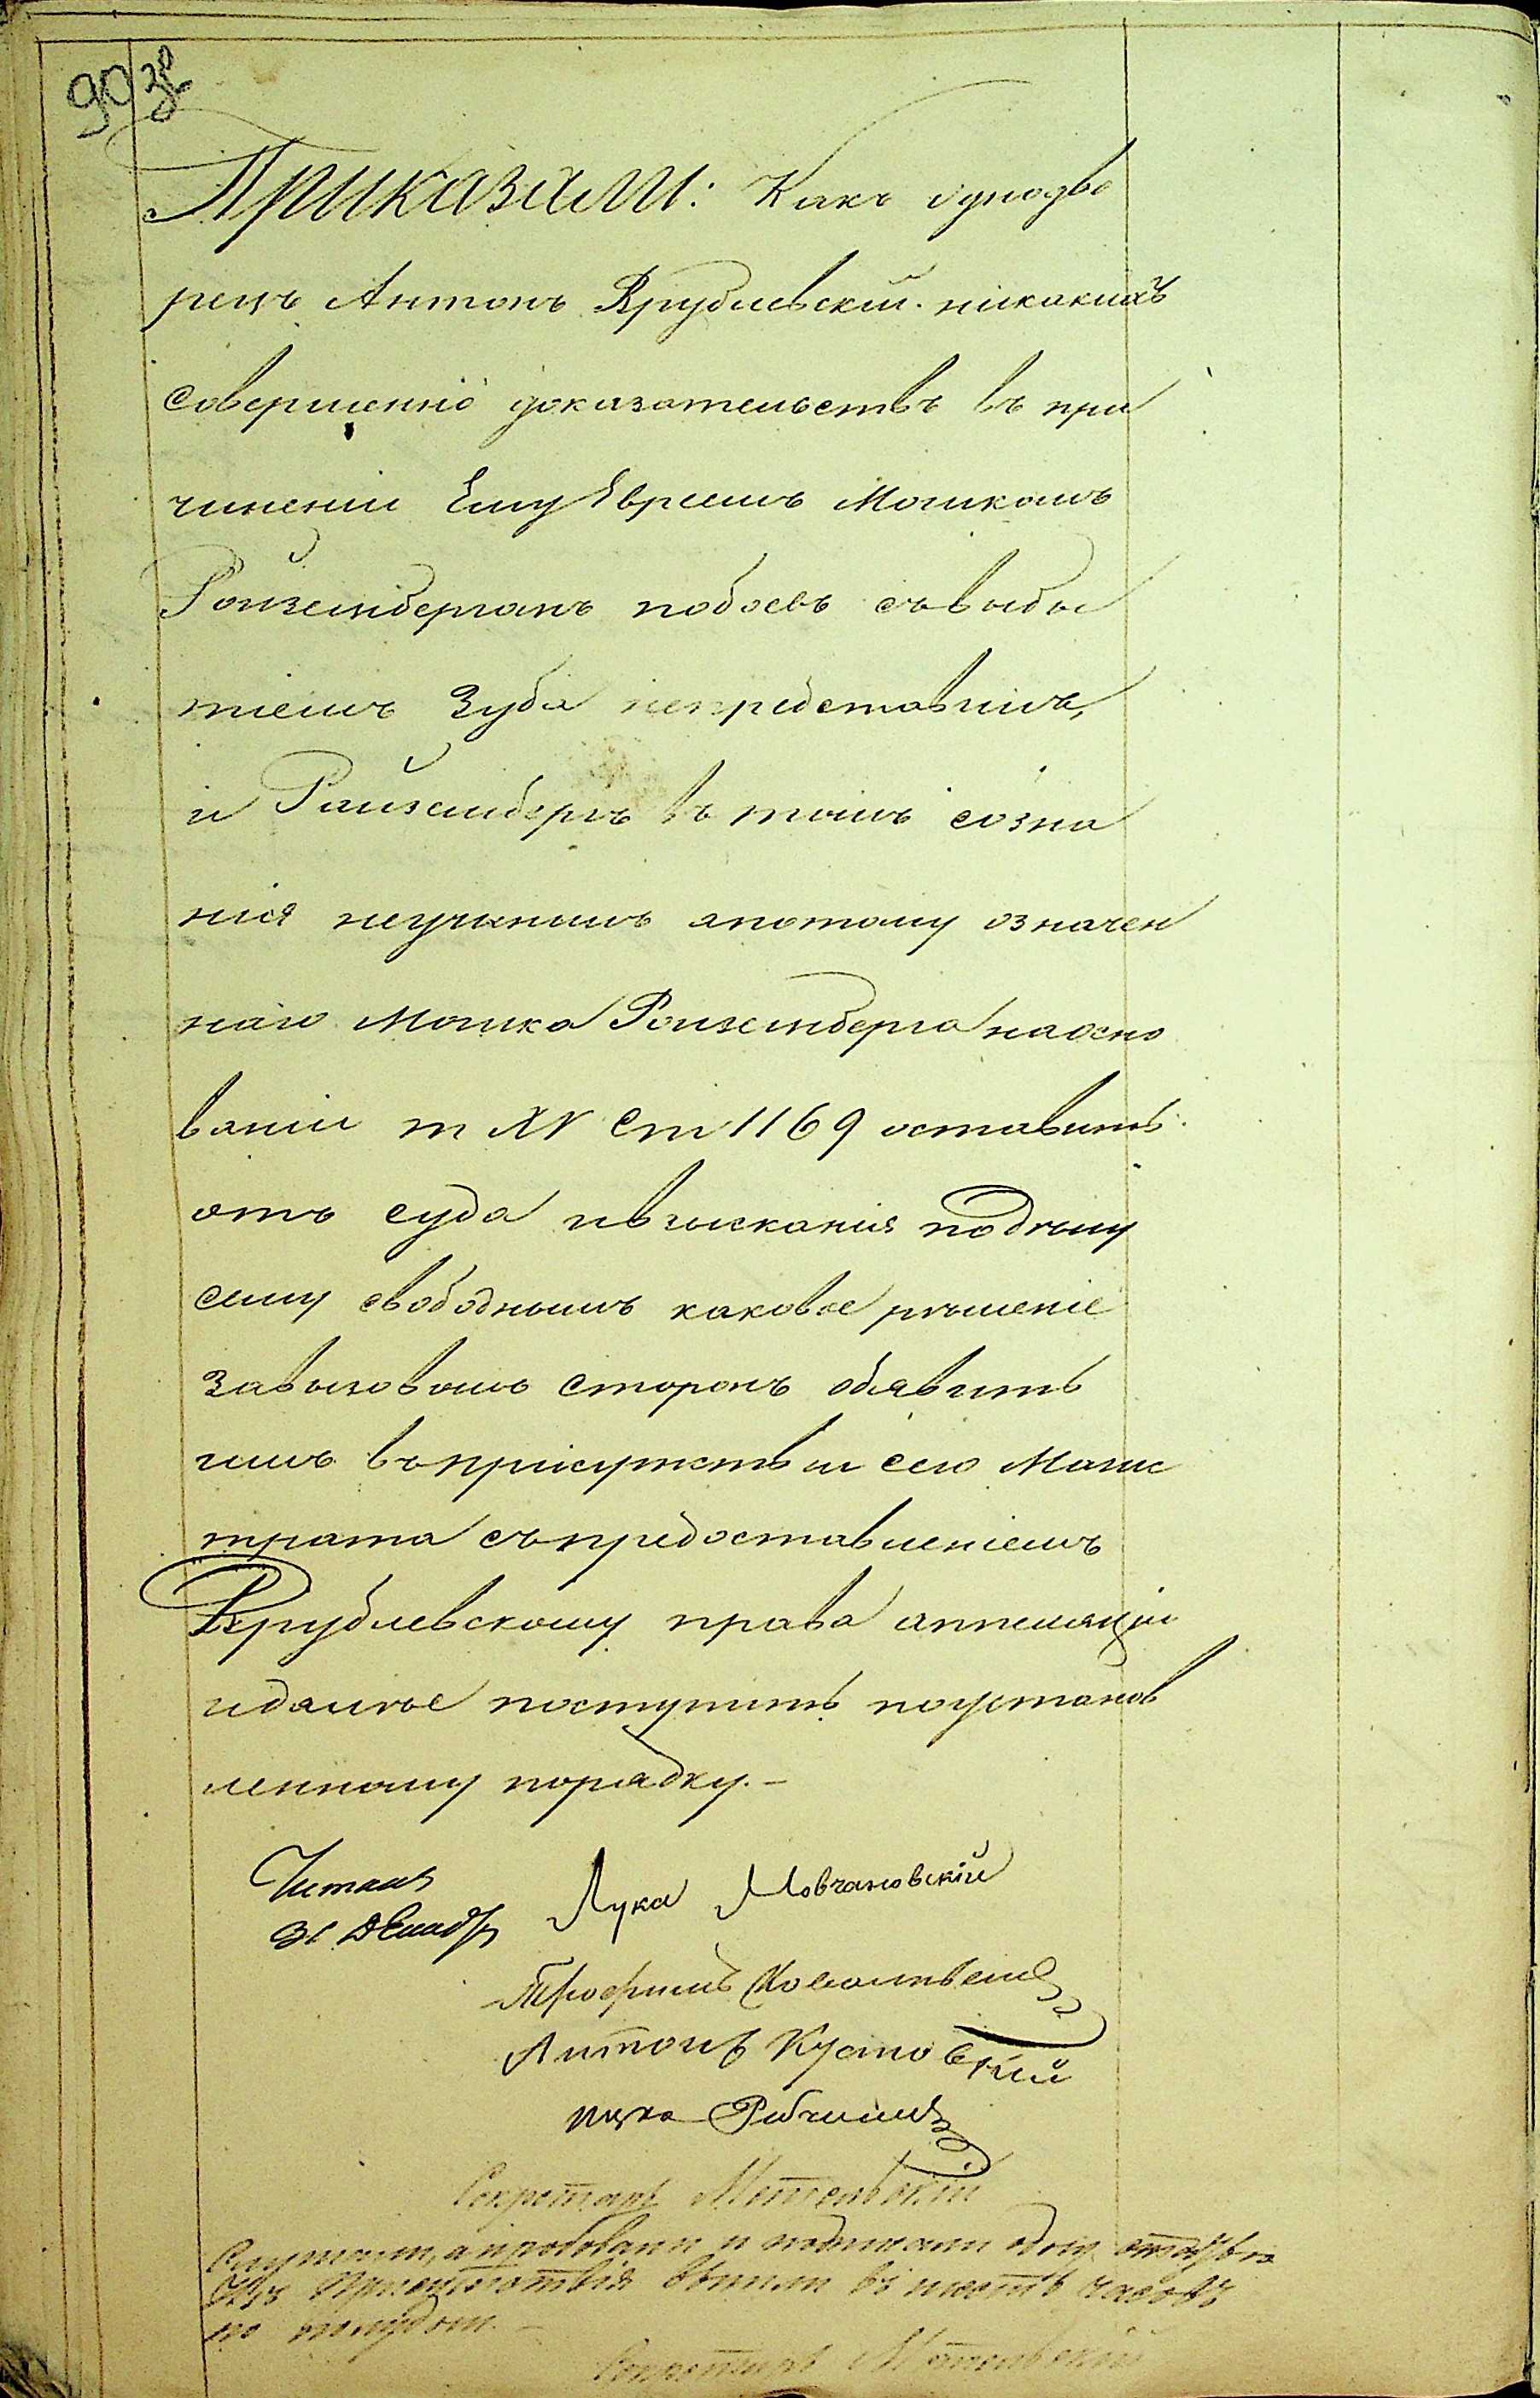 90
Приказали: Какъ однодво
рецъ Антонъ Врублевскій никакихъ
совершенно доказательствъ въ при
чиненіи Ему Евреемъ Мошкомъ
Ройзенбергомъ побоевъ съ выбы
тіемъ Зуба непредставилъ,
и Ройзенбергъ въ томъ созна
нія неучинилъ апотому означен
наго Мошка Ройзенберга наосно
ваніи т XV Ст 1169 оставить
отъ суда ивзысканія подѣлу
сему свободнымъ каковое рѣшеніе
завызовомъ Сторонъ обявить
имъ въприсутствіи сего Магис
трата съпредоставленіемъ
Врублевскому права аппеляціи
идалѣе поступить поустанов
ленному порядку.—
Читалъ
Лука Мовчановскій
Трофимъ
Антонъ Кустовскій
Секретарь
Слушали, апробовали и подписали
Изъ Присутствія вышли въ шесть часовъ
по полудни.—
Секретарь